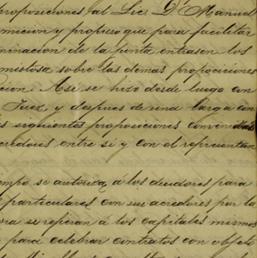 proposiciones al Lic. D. Manuel
mision y propuso que para facilitar
minacion de la junta entrasen los
mistosa sobre las demas proposiciones
cion. Asi se hizo desde luego con
Juez, y despues de una larga con
s siguientes proposiciones convenidas
cedores entre si y con el representan
mpo se autoriza á los deudores para
particulares con sus acredores por lo
ra se refieran á los capitales mismos
para celebrar contratos con objeto